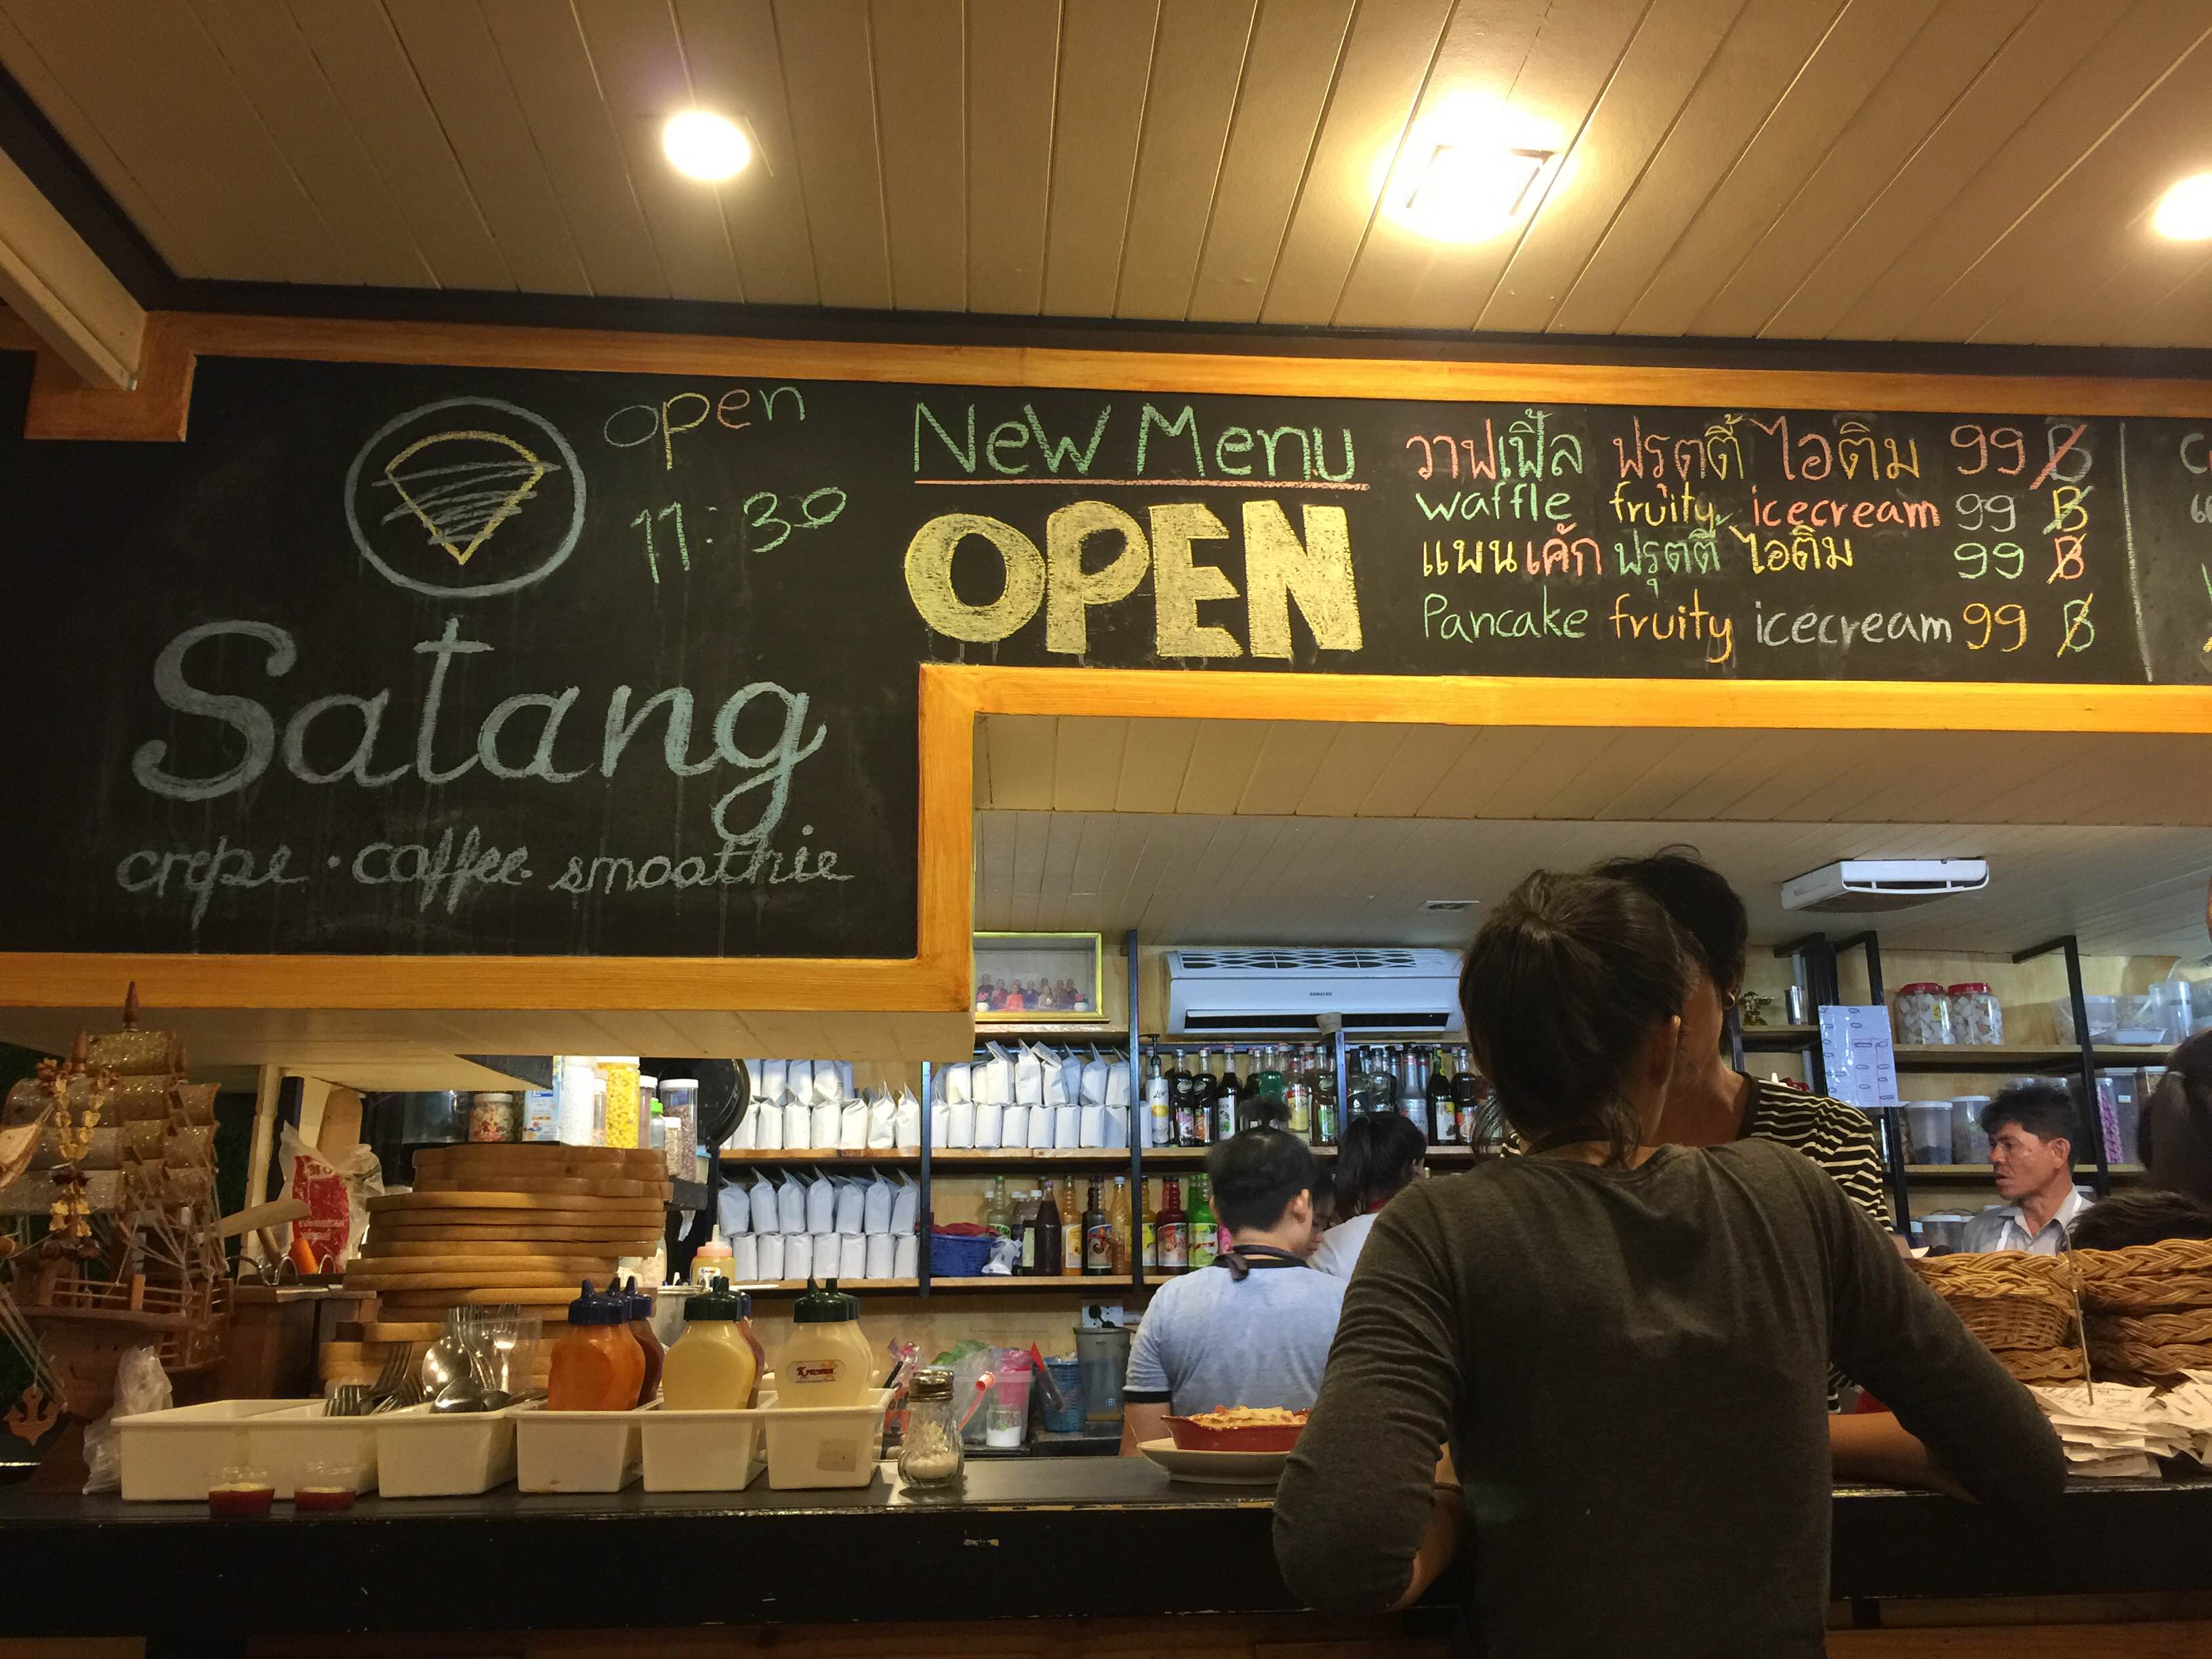 open
11:30
Satang
crepe · coffee · smoothie
New Menu
OPEN
วาฟเฟิ้ล ฟรุตตี้ ไอติม 99 ฿
waffle fruity icecream 99 ฿
แพนเค้ก ฟรุตตี้ ไอติม 99 ฿
Pancake fruity icecream 99 ฿
SAMSUNG